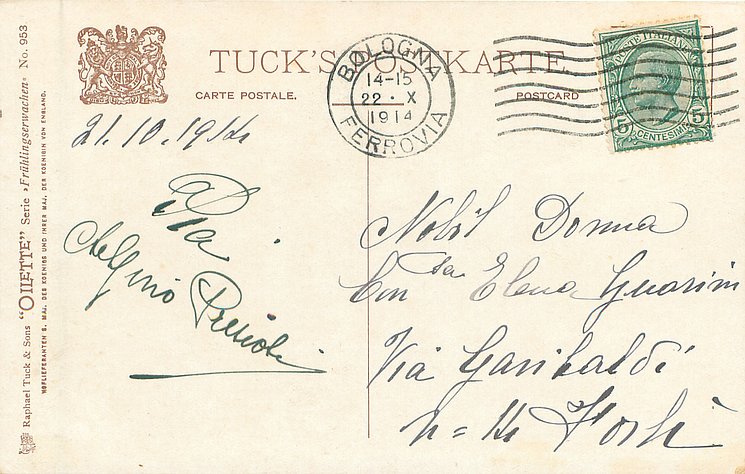 TUCK'S POSTKARTE.
CARTE POSTALE. POSTCARD
BOLOGNA
14-15
22 · X
1914
FERROVIA
POSTE ITALIANE
5 CENTESIMI 5
21.10.914
Pia
Nobil Donna
Con ssa Elena Guarini
Via Garibaldi
Forlì
Raphael Tuck & Sons "OILETTE" Serie »Frühlingserwachen« No. 953
HOFLIEFERANTEN S. MAJ. DES KOENIGS UND IHRER MAJ. DER KOENIGIN VON ENGLAND.